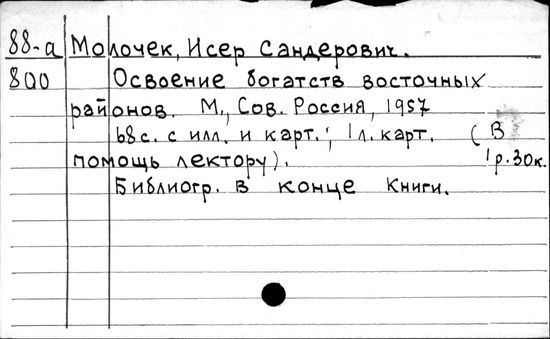 88-а Молочек, Исер Сандерович.
800 Освоение богатств восточных
районов. М., Сов. Россия, 1957
68 с. с илл. и карт.; 1 л. карт. (В
помощь лектору). 1 р. 30 к.
Библиогр. в конце книги.